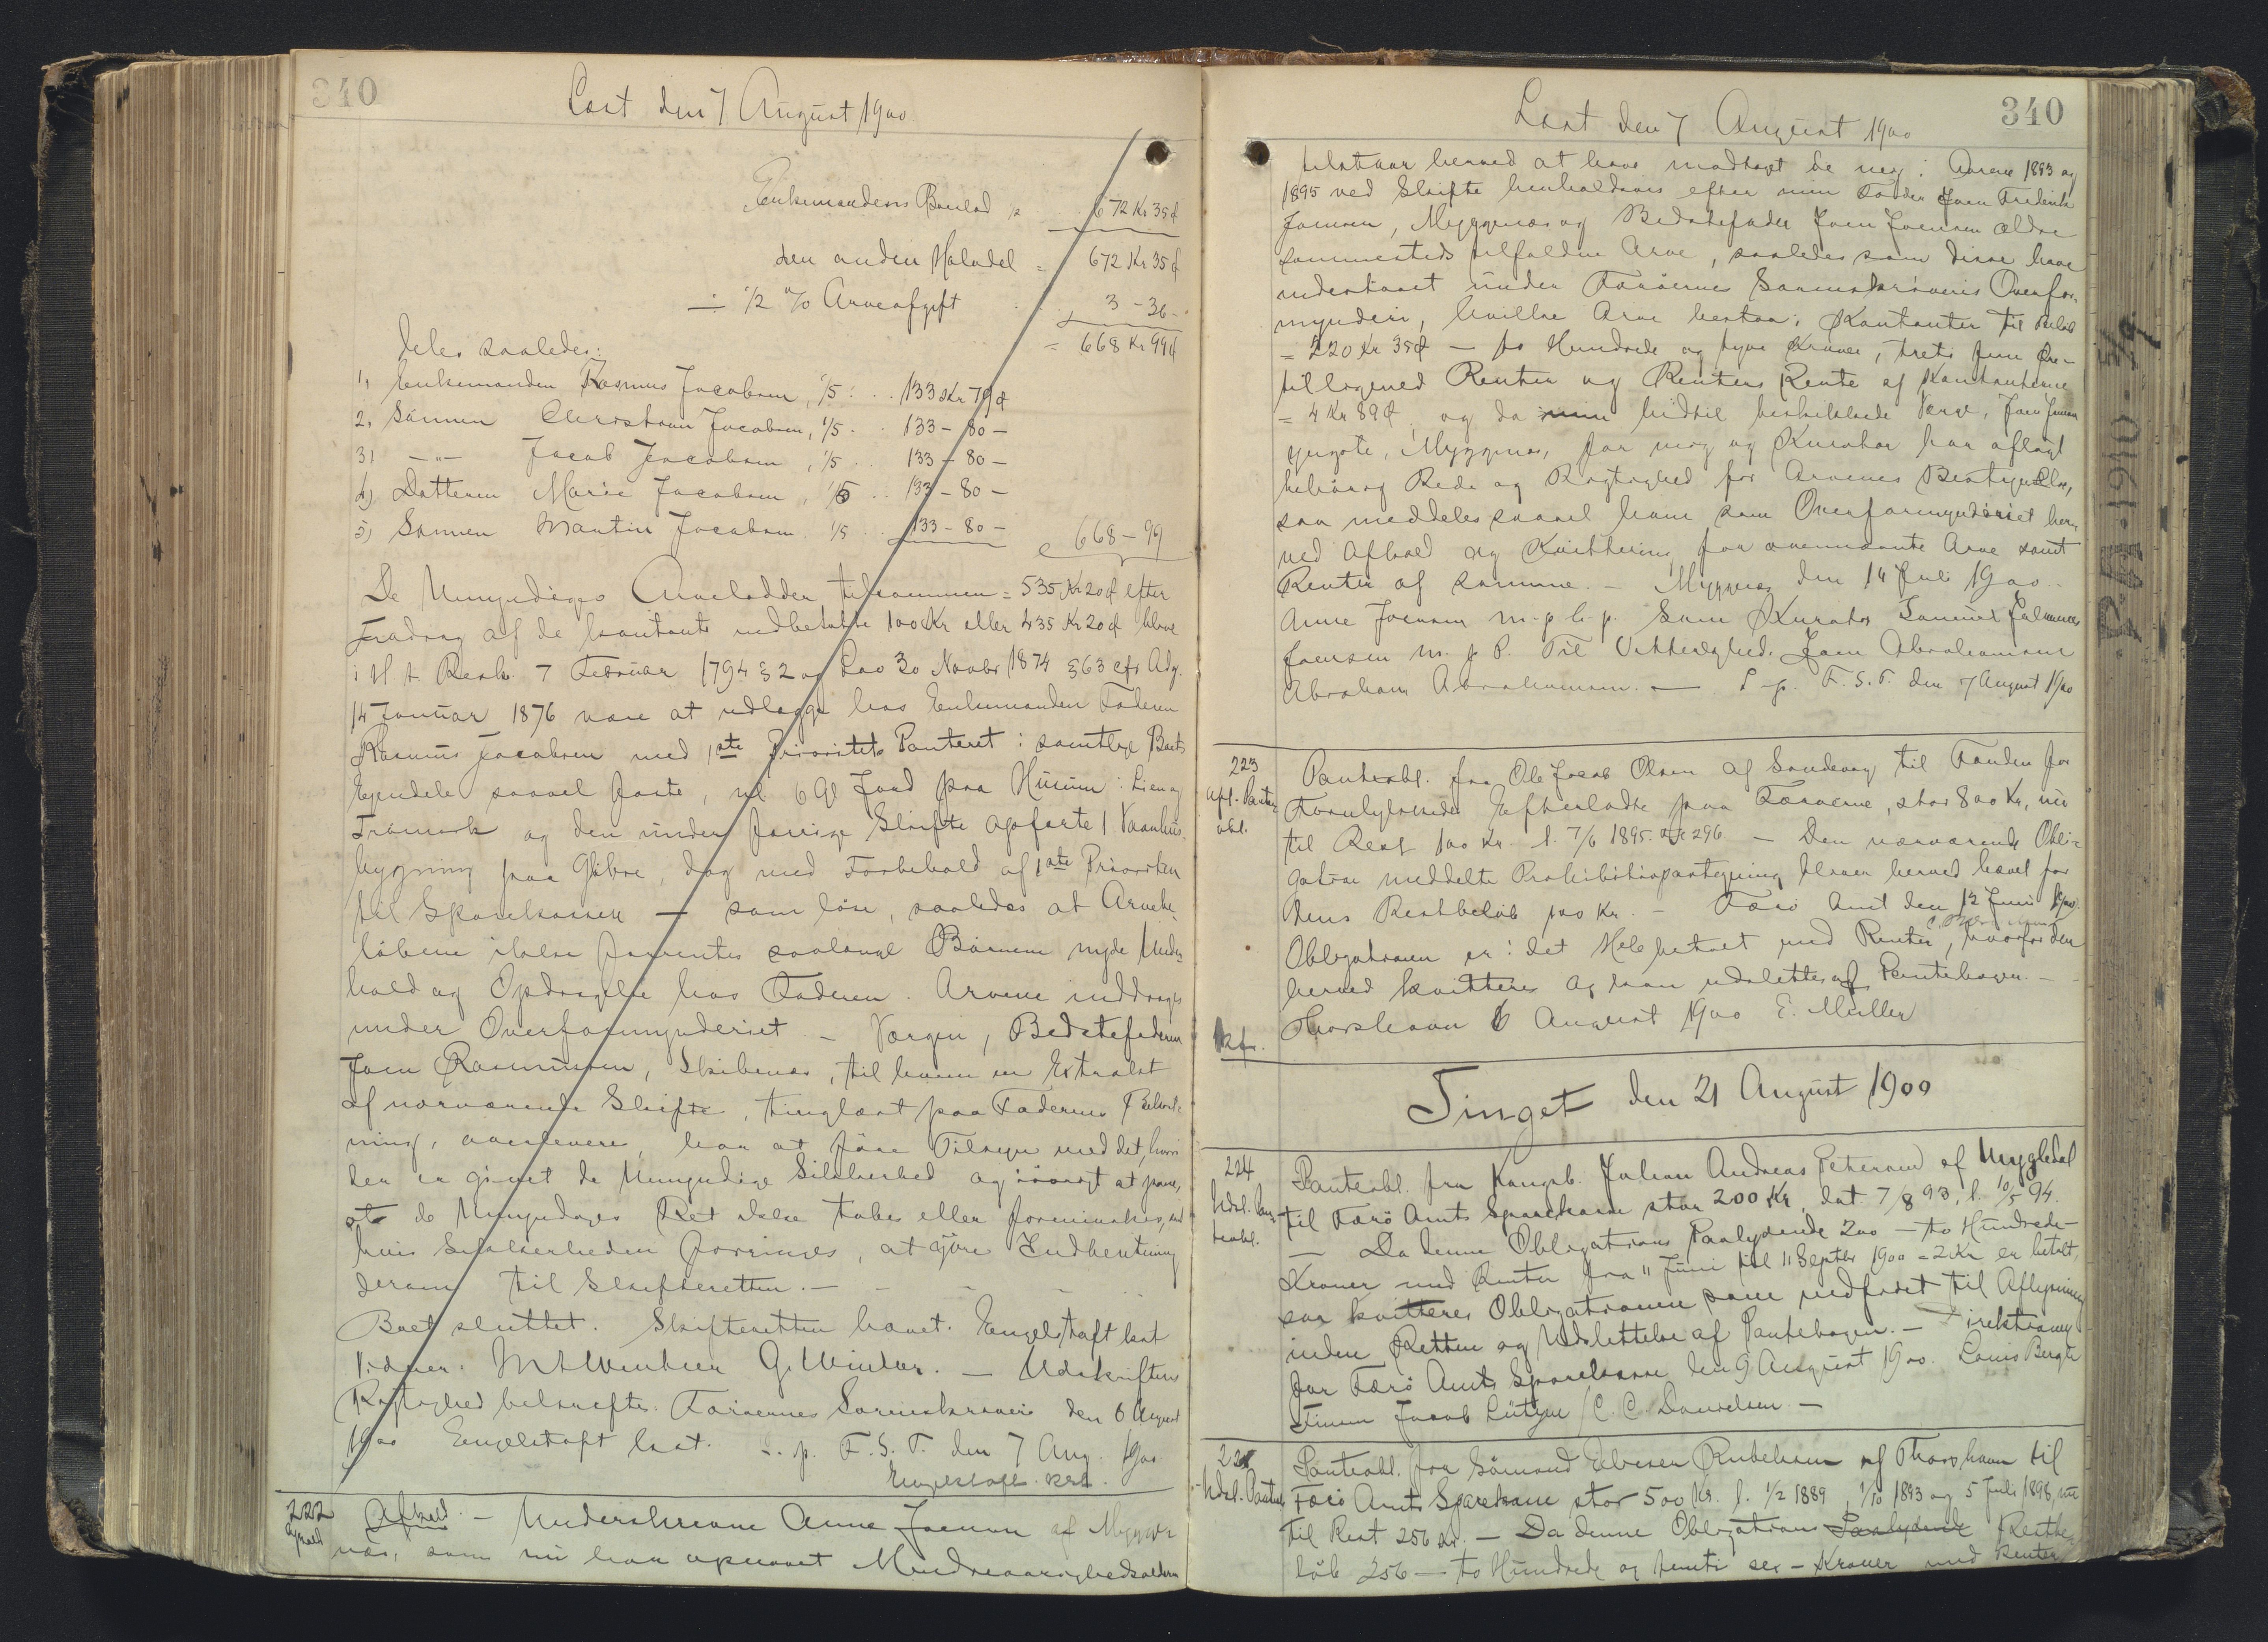 340
Læst den 7 August 1900
Enkemandens Boslod = 672 Kr 35 Ø
den anden Halvdel = 672 Kr 35 Ø
÷ 1/2 % Arveafgift 3 - 36 -
= 668 Kr 99 Ø
deles saaledes:
1, Enkemanden Rasmus Jacobsen, 1/5 . . 133 Kr 79 Ø
2, Sønnen Christian Jacobsen, 1/5 . . 133 - 80 -
3) -"- Jacob Jacobsen, 1/5 . . 133 - 80 -
4) Datteren Marie Jacobsen, 1/5 . . 133 - 80 -
5) Sønnen Martin Jacobsen 1/5 . . 133 - 80 -
668 - 99
De Umyndiges Arvelodder tilsammen = 535 Kr 20 Ø efter
Fradrag af de kontante indbetalte 100 Kr eller 435 Kr 20 Ø blive
i H. t. Resk. 7 Februar 1794 § 2 og Lov 30 Novbr 1874 § 63 cfr Adg.
14 Januar 1876 være at udlægge hos Enkemanden Faderen
Rasmus Jacobsen med 1ste Prioritets Panteret i samtlige Boets
Ejendele saavel faste, nl 6 Gl Jord paa Húsum i Lien og
Trømark og den under forrige Skifte opførte 1 Vaanhus-
bygning paa Gjibre, dog med Forbehold af 1ste Prioritet
til Sparekassen — som løse, saaledes at Arvebe-
løbene ikke forrentes saalænge Børnene nyde Under-
hold og Opdragelse hos Faderen. Arvene inddrages
under Overformynderiet — Værgen, Bedstefaderen
Joen Rasmussen, Skibenæs, til hvem en Extrakt
af nærværende Skifte, tinglæst paa Faderens Bekost-
ning, overleveres, har at føre Tilsyn med det, hvori
der er givet de Umyndige Sikkerhed og iøvrigt at passe,
at de Umyndiges Ret ikke tabes eller formindskes, med
hvis Sikkerheden forringes, at gjøre Indberetning
derom til Skifteretten. —
Boet sluttet. Skifteretten hævet. Engelstoft kst
Vidner: M A Winther G. Winther. — Udskriftens
Rigtighed bekræftes. Færøernes Sorenskriveri den 6 August
1900 Engelstoft kst. L. p. F. S. T. den 7 Aug. 1900
Engelstoft kst.
222
Afkald
Afkald. — Underskrevne Anne Joensen af Myggenæs
næs, som nu har opnaaet Mindreaarighedsalderen
Læst den 7 August 1900
340
tilstaar herved at have modtaget de mig i Aarene 1893 og
1895 ved Skifte henholdsvis efter min Fader Joen Frederik
Joensen, Myggenæs og Bedstefader Joen Joensen ældre
sammesteds tilfaldne Arve, saaledes som disse have
indestaaet under Færøernes Sorenskriveris Overfor-
mynderi, hvilke Arve bestaa i Kontanter til Beløb
= 220 Kr 35 Ø — to Hundrede og tyve Kroner, treti fem Øre —
tilligemed Renter og Renters Rente af Kontanterne
= 4 Kr 89 Ø, og da min hidtil beskikkede Værge, Joen Joensen
yngste, Myggenæs, for mig og Kurator har aflagt
behørig Rede og Rigtighed for Arvenes Bestyrelse,
saa meddeles saavel ham som Overformynderiet her-
ved Afkald og Kvittering for ovennævnte Arve samt
Renter af samme. — Myggenæs den 14 Juli 1900.
Anne Joensen m. f. P. Som Kurator Samuel
Joensen m. f. P. Til Vitterlighed: Joen Abrahamsen
Abraham Abrahamsen. — L. p. F. S. T. den 7 August 1900
223
afl. Pante
obl.
Panteobl. fra Ole Jacob Olsen af Sandevaag til Fonden for
Forulykkedes Efterladte paa Færøerne, stor 800 Kr, nu
til Rest 100 Kr. l. 7/6 1895. Nr 296 — Den nærværende Obli-
gation meddelte Prohibitivpaategning bliver herved hævet for
dens Restbeløb 100 Kr. — Færø Amt den 12 Juni 1900.
Obligationen er i det Hele betalt med Renter, hvorfor den
herved kvitteres og kan udslettes af Pantebogen. —
Thorshavn 6 August 1900 E. Müller
Tinget den 21 August 1900
224
Udsl. Pan-
teobl.
Panteobl. fra Kongsb. Johan Andreas Petersen af Mygledal
til Færø Amts Sparekasse stor 200 Kr, dat 7/8 93, l. 10/5 94.
— Da denne Obligations Paalydende 200 — to Hundrede —
Kroner med Renter fra 11 Juni til 11 Septbr 1900 = 2 Kr er betalt,
saa kvitteres Obligationen som indfriet til Aflysning
inden Retten og Udslettelse af Pantebogen. — Direktionen
for Færø Amts Sparekasse den 9 August 1900. Louis Bergh
Jacob Lützen / C. C. Danielsen —
225
Udsl. Pante
Panteobl. fra Sømand af Thorshavn til
Færø Amts Sparekasse stor 500 Kr. l. 1/2 1889, 1/10 1893 og 5 Juli 1898, nu
til Rest 256 Kr. — Da denne Obligations Paalydende Restbe-
løb 256 — to Hundrede og femti sex — Kroner med Renter
P. M. 1910 5/9